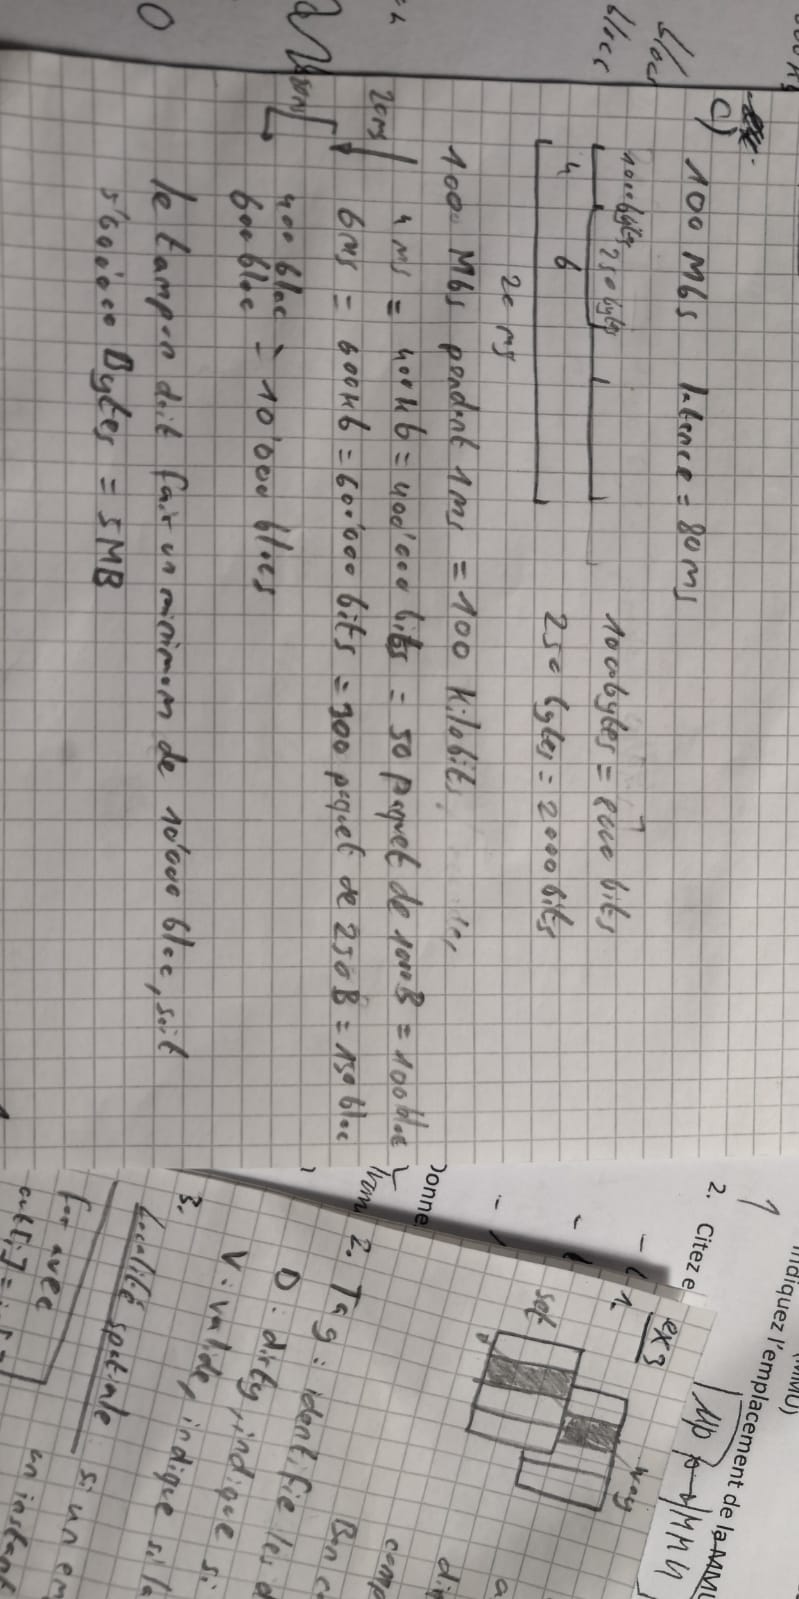 c)
100 Mbs latence = 80ms
1000bytes 250bytes
4 6
20 ms
1000bytes = 8000 bits
250 bytes = 2000 bits
100 Mbs pendant 1ms = 100 Kilobits
20ms
4 ms = 400Kb = 400'000 bits = 50 paquet de 1000B = 100 bloc
6ms = 600Kb = 600'000 bits = 300 paquet de 250B = 150 bloc
80ms
400 bloc
600 bloc
= 10'000 blocs
le tampon doit fair un minimum de 10'000 bloc, soit
5'000'000 Bytes = 5MB
blocs
blocs
(MMU)
indiquez l'emplacement de la MMU
1
µp MMU
2. Citez e
ex 3
1.
way
set
Donne
comp
Bon c
2. Tag : identifie les d
D : dirty, indique si
V : valide, indique si la
3.
Localité spatiale si un em
un instant
For avec